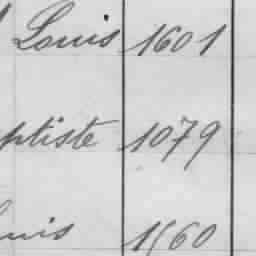 Louis 1601
ptiste 1079
uis 1560